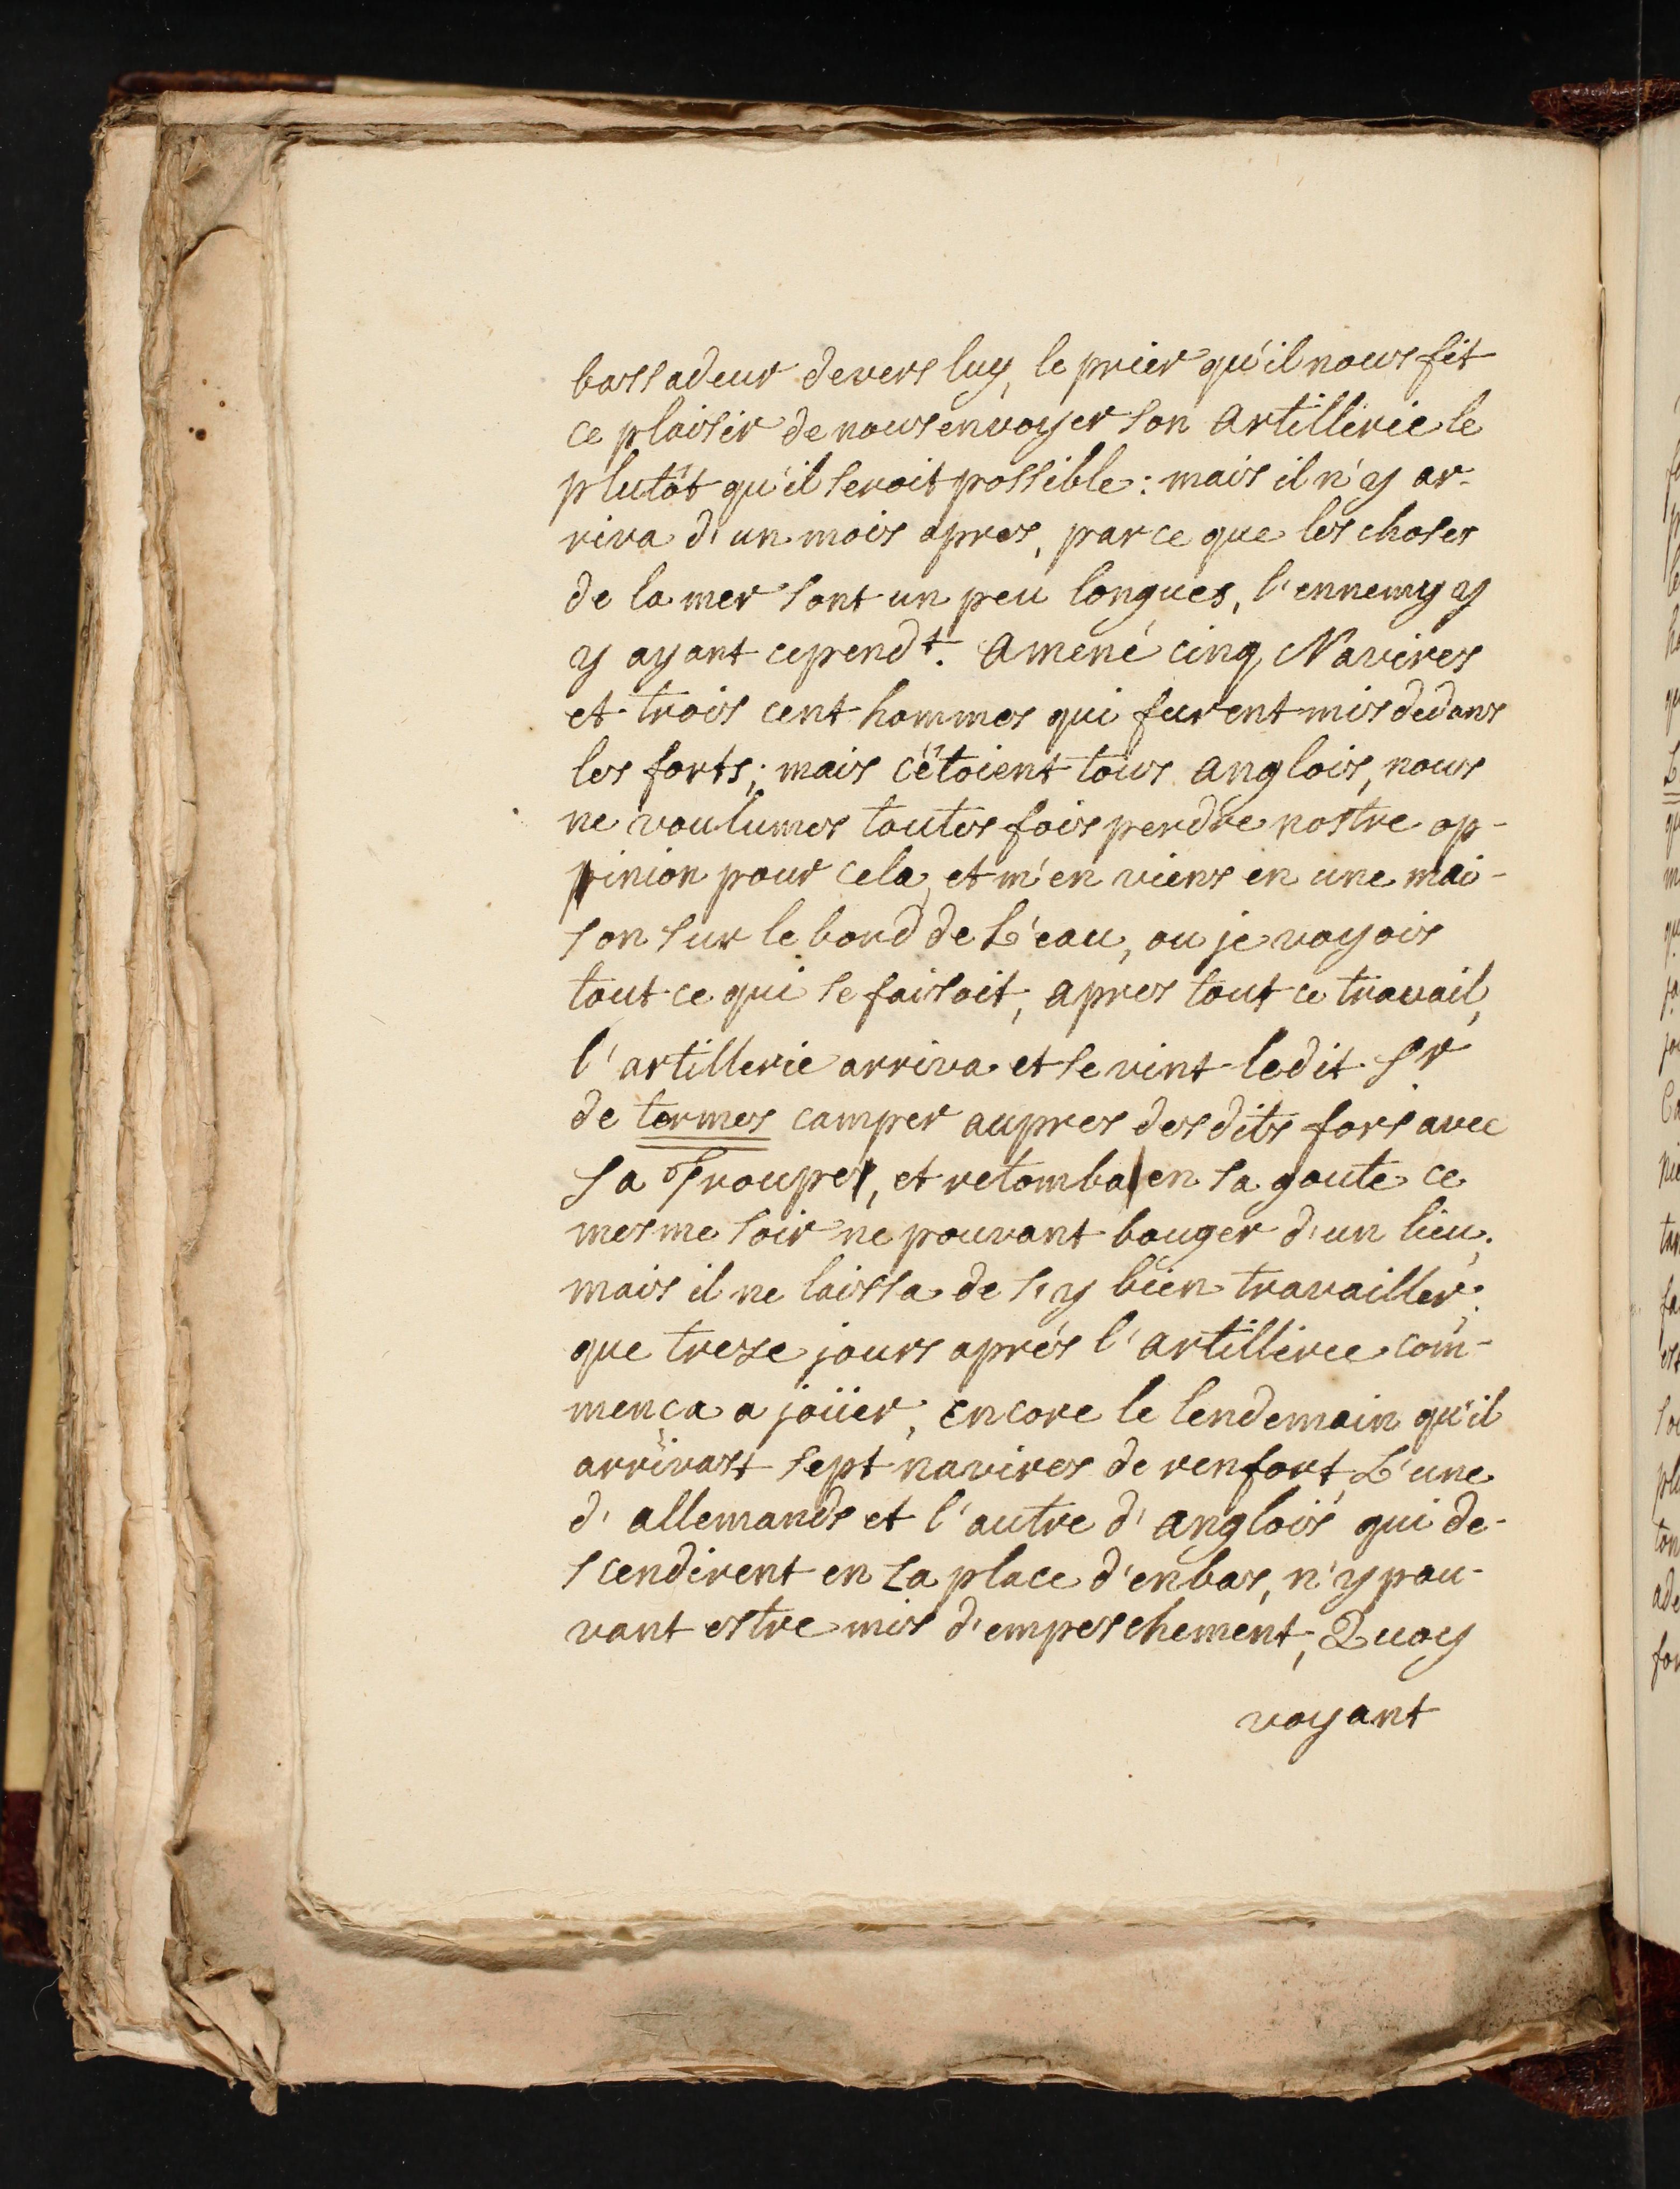 bassadeur devers luy, le prier qu'il nous fit
ce plaisir de nous envoyer son artillerie le
plutôt qu'il seroit possible : mais il n'y ar-
riva d'un mois apres, parce que les choses
de la mer sont un peu longues, l'ennemy y
y ayant cependt. amené cinq Navires
et trois cent hommes qui furent mis dedans
les forts; mais c'étoient tous anglois, nous
ne voulumes toutes fois perdre nostre op-
pinion pour cela, et m'en viens en une mai-
son sur le bord de L'eau, ou je voyois
tout ce qui se faisoit; apres tout ce travail,
l'artillerie arriva et se vint ledit Sr
de termes camper aupres desdits fors avec
sa Troupe, et retomba en sa goute ce
mesme soir ne pouvant bouger d'un lieu;
mais il ne laissa de s'y bien travailler;
que treze jours aprés l'artillerie com-
mença a joüer, encore le lendemain qu'il
arrivast sept navires de renfort, L'une
d'allemands et l'autre d'anglois qui de-
scendirent en la place d'enbas, n'y pou-
vant estre mis d'empeschement; Quoy
voyant